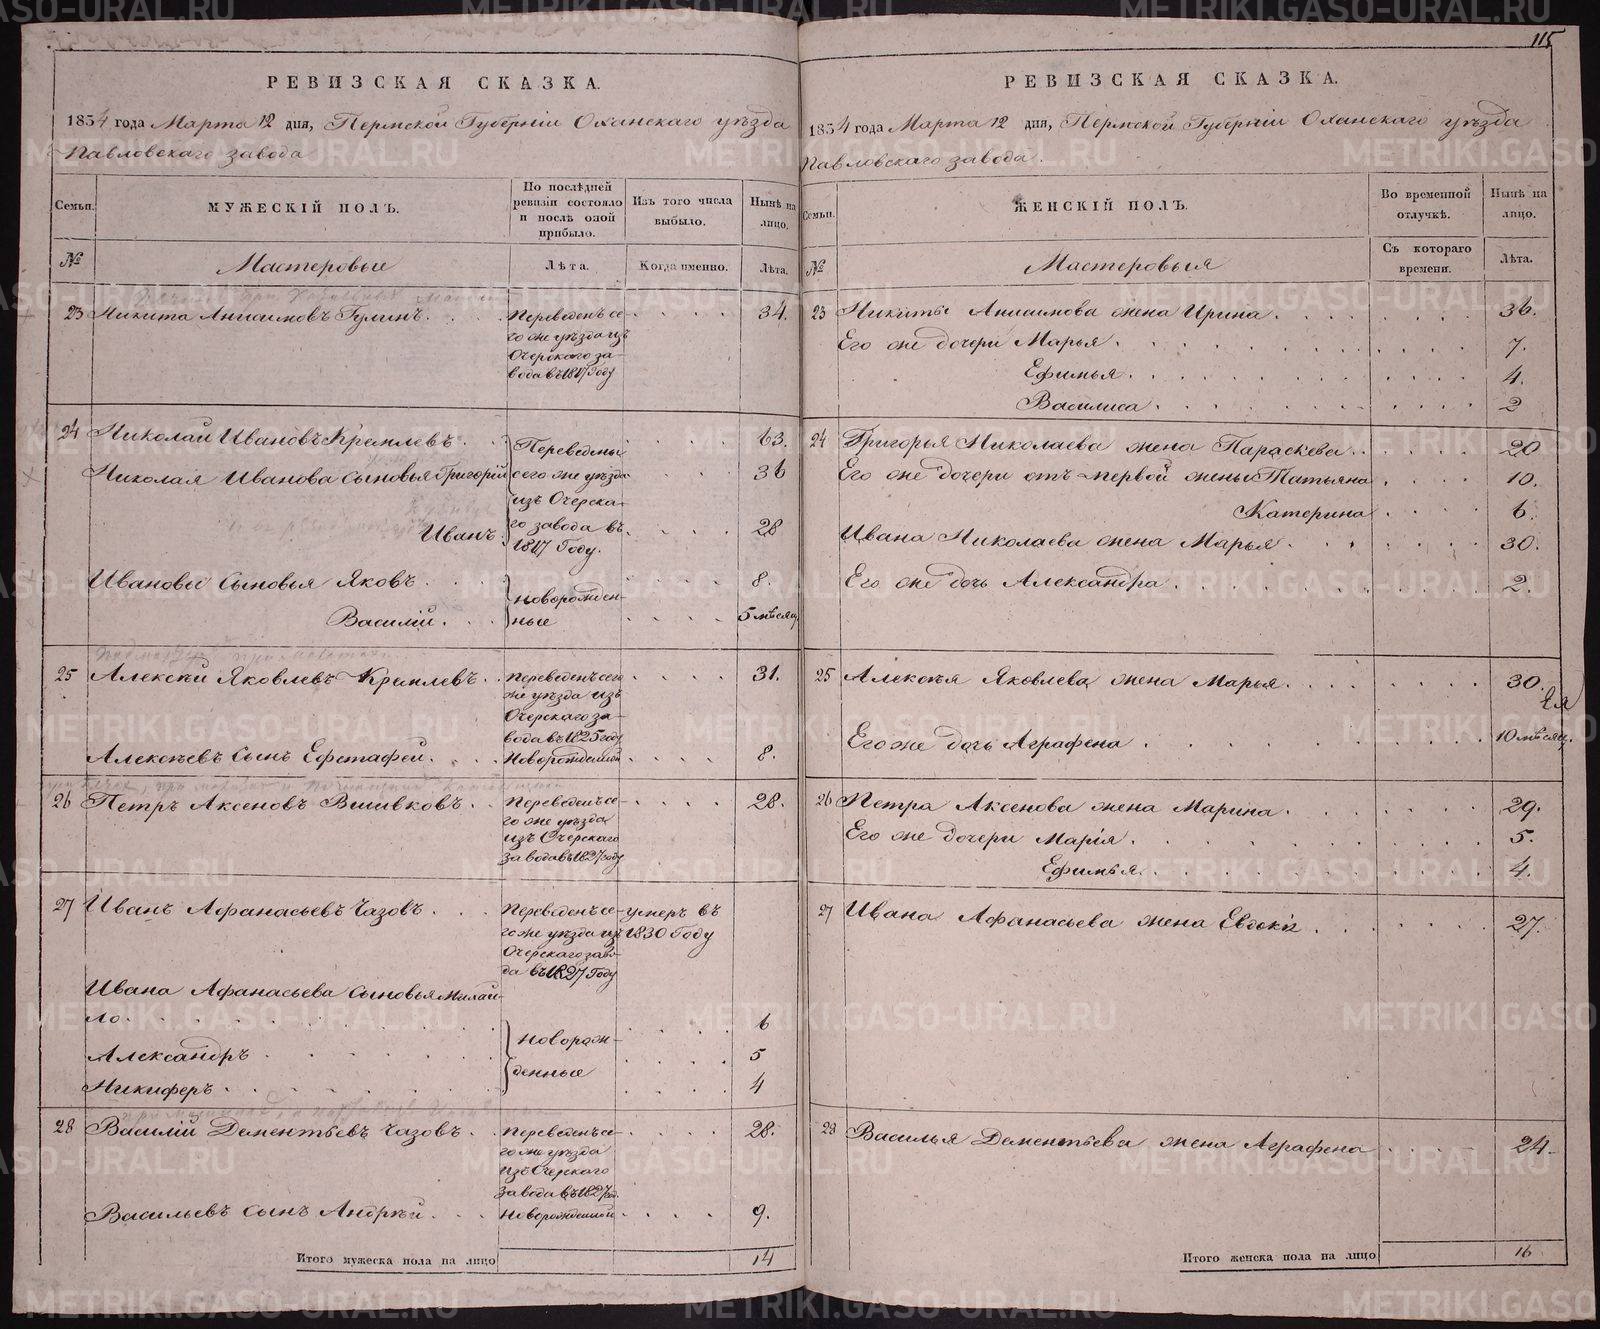 115
РЕВИЗСКАЯ СКАЗКА.
1834 года Марта 12 дня, Пермской Губерніи Оханскаго уѣзда
Павловскаго завода
Семьи.
МУЖЕСКІЙ ПОЛЪ.
По послѣдней ревизіи состояло и послѣ оной прибыло.
Изъ того числа выбыло.
Нынѣ на лицо.
№
Мастеровые
Лѣта.
Когда именно.
Лѣта.
23 Никита Анисимовъ Гулинъ. Переведенъ се- 34.
го же уѣзда изъ
Очерскаго за-
вода въ 1817 году
24 Николай Ивановъ Кремлевъ. Переведены 63.
Николая Иванова сыновья Григорій сего же уѣзда 36
изъ Очерска-
Иванъ. го завода въ 28
1817 Году.
Ивановы сыновья Яковъ. новорожден- 8.
Василій. ные 5 мѣсяц
25 Алексѣй Яковлевъ Кремлевъ. Переведенъ сего 31.
же уѣзда изъ
Очерскаго за-
вода въ 1825 году
Алексѣевъ сынъ Ефстафей. Новорожденной 8.
26 Петръ Аксеновъ Вшивковъ. Переведенъ се- 28.
го же уѣзда
изъ Очерскаго
завода въ 1827 году
27 Иванъ Афанасьевъ Чазовъ. Переведенъ се- умеръ въ
го же уѣзда изъ 1830 Году
Очерскаго заво-
да въ 1827 Году
Ивана Афанасьева сыновья Михай-
ло. 6
Александръ. новорож- 5
Никиферъ. денные 4
28 Василій Дементьевъ Чазовъ. Переведенъ се- 28.
го же уѣзда
изъ Очерскаго
завода въ 1827 год.
Васильевъ сынъ Андрѣй. Новорожденной 9.
Итого мужеска пола на лицо 14
РЕВИЗСКАЯ СКАЗКА.
1834 года Марта 12 дня, Пермской Губерніи Оханскаго уѣзда
Павловскаго завода.
Семьи.
ЖЕНСКІЙ ПОЛЪ.
Во временной отлучкѣ.
Нынѣ на лицо.
№
Мастеровыя
Съ котораго времени.
Лѣта.
23 Никиты Анисимова жена Ирина. 36.
Его же дочери Марья. 7.
Ефимья. 4.
Василиса. 2
24 Григорья Николаева жена Параскева. 20
Его же дочери отъ первой жены Татьяна 10.
Катерина 6.
Ивана Николаева жена Марья. 30.
Его же дочь Александра. 2.
25 Алексѣя Яковлева жена Марья. 30.
Его же дочь Аграфена. 10 мѣсяц.
26 Петра Аксенова жена Марина. 29.
Его же дочери Марія. 5.
Ефимья. 4.
27 Ивана Афанасьева жена Евдокія. 27.
28 Василья Дементьева жена Аграфена 24.
Итого женска пола на лицо 16
METRIKI.GASO-URAL.RU